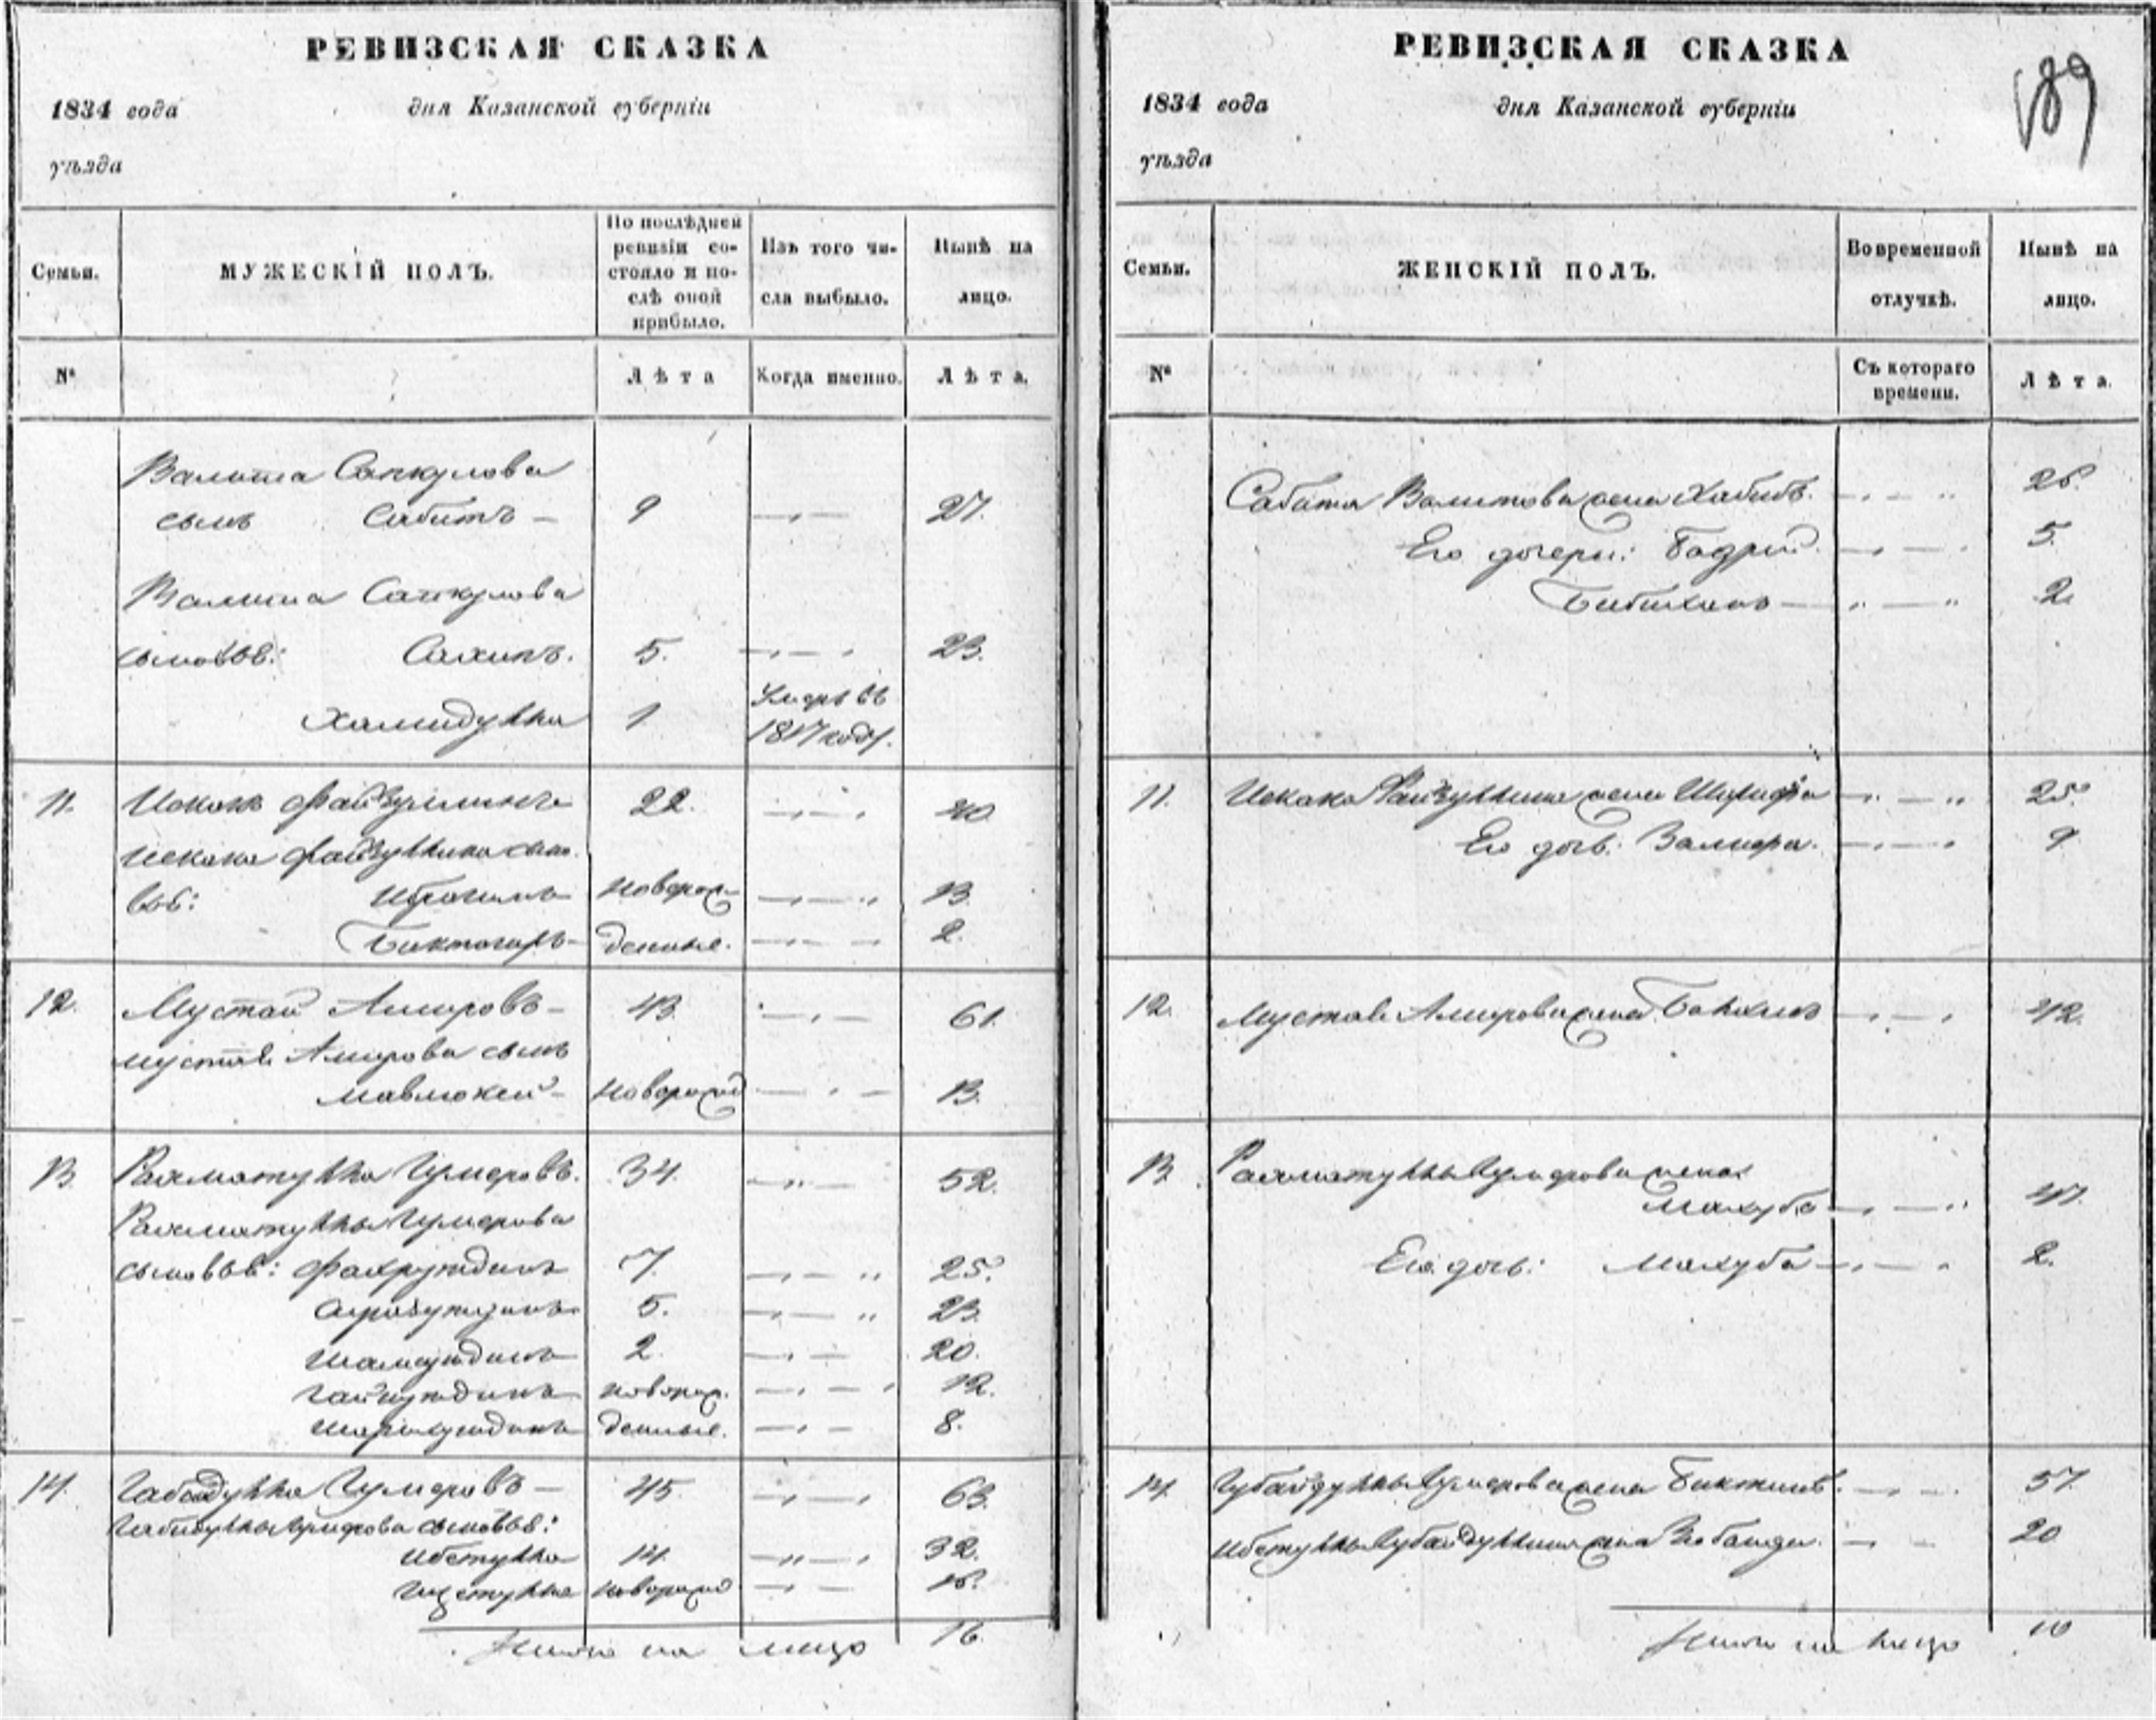 РЕВИЗСКАЯ СКАЗКА
1834 года дня Казанской губерніи
уѣзда
Семьи.
МУЖЕСКІЙ ПОЛЪ.
По послѣдней
ревизіи со-
стояло и по-
слѣ оной
прибыло.
Изъ того чи-
сла выбыло.
Нынѣ на
лицо.
№
Лѣта
Когда именно.
Лѣта.
Валита Сапкулова
сынъ Сабитъ 9 27.
Валита Сапкулова
сыновья: Салихъ. 5. 23.
Хамидулла 1 Умеръ въ
1817 году.
11. Искакъ Файзуллинъ 22. 40
Искака Файзуллина сыно
вья: Ибрагимъ новорож 13.
денные. 2.
12. Мустай Амировъ 43. 61.
Мустая Амирова сынъ
Мавлюкей новорожд 13.
13 Рахматулла Гумеровъ. 34. 52.
Рахматуллы Гумерова
сыновья: Фахрутдинъ 7. 25.
5. 23.
2. 20.
новорож. 12.
денные. 8.
14. Губайдулла Гумеровъ 45 63.
Гумерова сыновья:
14. 32.
новорожд
Итого на лицо 16.
РЕВИЗСКАЯ СКАЗКА
189
1834 года дня Казанской губерніи
уѣзда
Семьи.
ЖЕНСКІЙ ПОЛЪ.
Во временной
отлучкѣ.
Нынѣ на
лицо.
№
Съ котораго
времени.
Лѣта.
Сабита Валитова жена Хабибъ.
Его дочери: Бадрій. 5.
2.
11. Искака Файзуллина жена 25.
Его дочь: 9.
12. Мустая Амирова жена 42.
13. Рахматуллы Гумерова жена
Махуба 47.
Его дочь: Махуба 2.
14. Губайдуллы Гумерова жена 57.
Губайдуллина жена 20
Итого на лицо 10